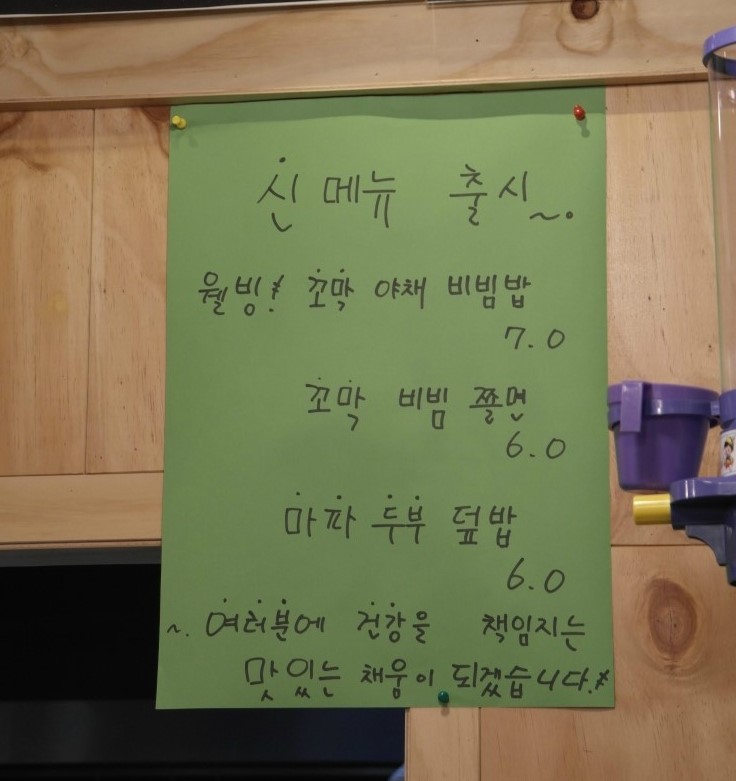 신메뉴 출시~.
웰빙! 꼬막 야채 비빔밥
7.0
꼬막 비빔 쫄면
6.0
마파 두부 덮밥
6.0
~. 여러분에 건강을 책임지는
맛있는 채움이 되겠습니다.